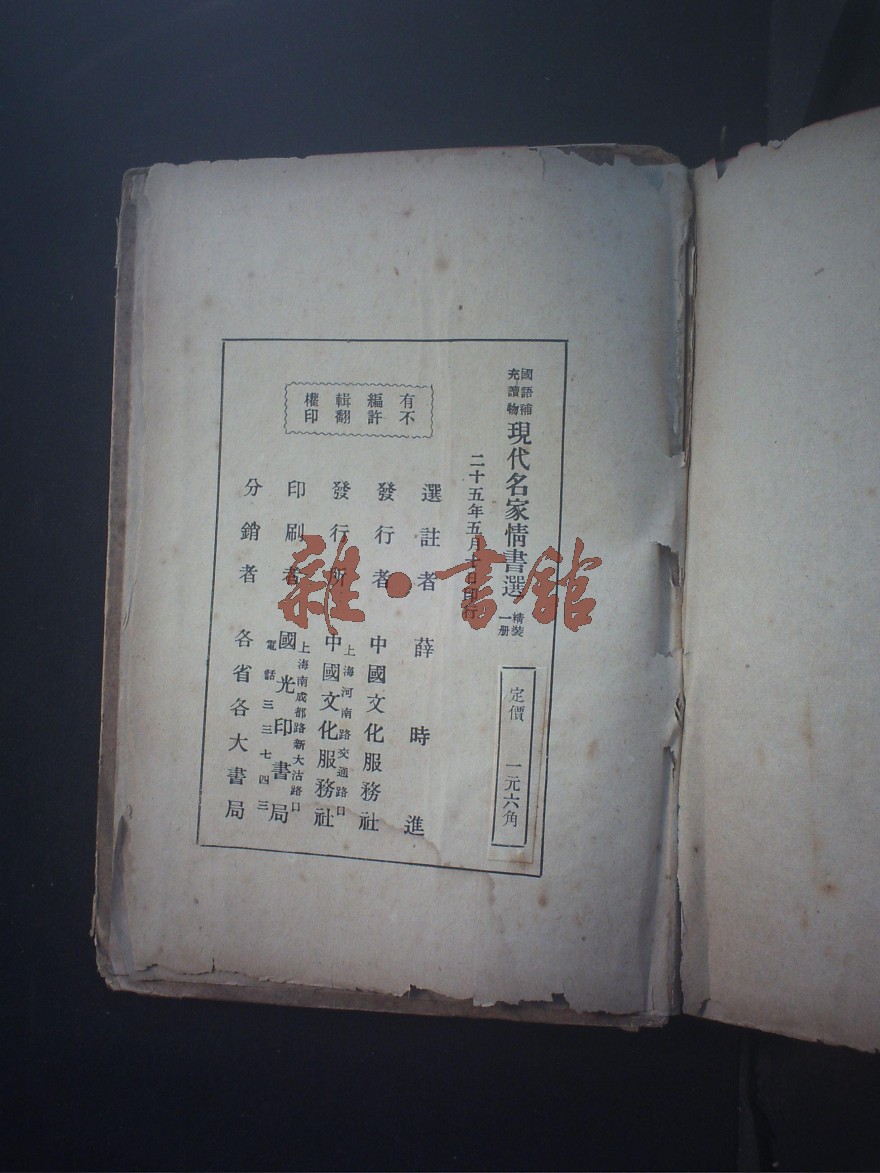 國語補
充讀物
現代名家情書選
精裝
一册
定價 一元六角
二十五年五月十日印行
有不
編許
輯翻
權印
選註者 薛時進
發行者 中國文化服務社
發行所 中國文化服務社
上海河南路交通路口
印刷者 國光印書局
上海南成都路新大沽路口
電話三三七四三
分銷者 各省各大書局
雜·書館